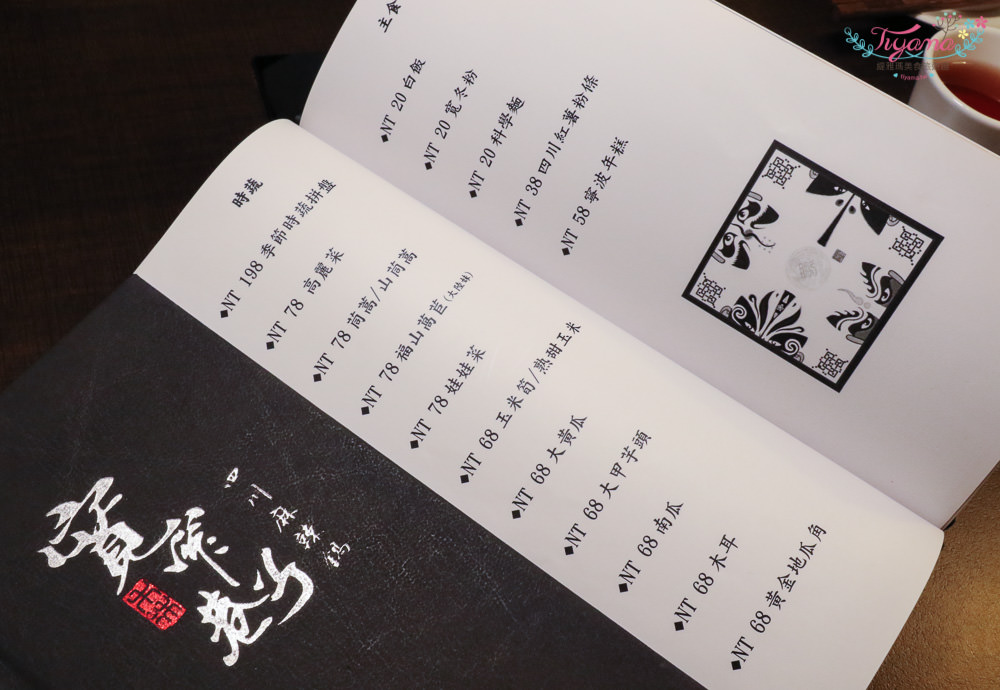 主食
◆NT 20 白飯
◆NT 20 寬冬粉
◆NT 20 科學麵
◆NT 38 四川紅薯粉條
◆NT 58 寧波年糕
時蔬
◆NT 198 季節時蔬拼盤
◆NT 78 高麗菜
◆NT 78 茼蒿/山茼蒿
◆NT 78 福山萵苣(大陸妹)
◆NT 78 娃娃菜
◆NT 68 玉米筍/熟甜玉米
◆NT 68 大黃瓜
◆NT 68 大甲芋頭
◆NT 68 南瓜
◆NT 68 木耳
◆NT 68 黃金地瓜角
寬窄巷子
四川麻辣鍋
Tiyama